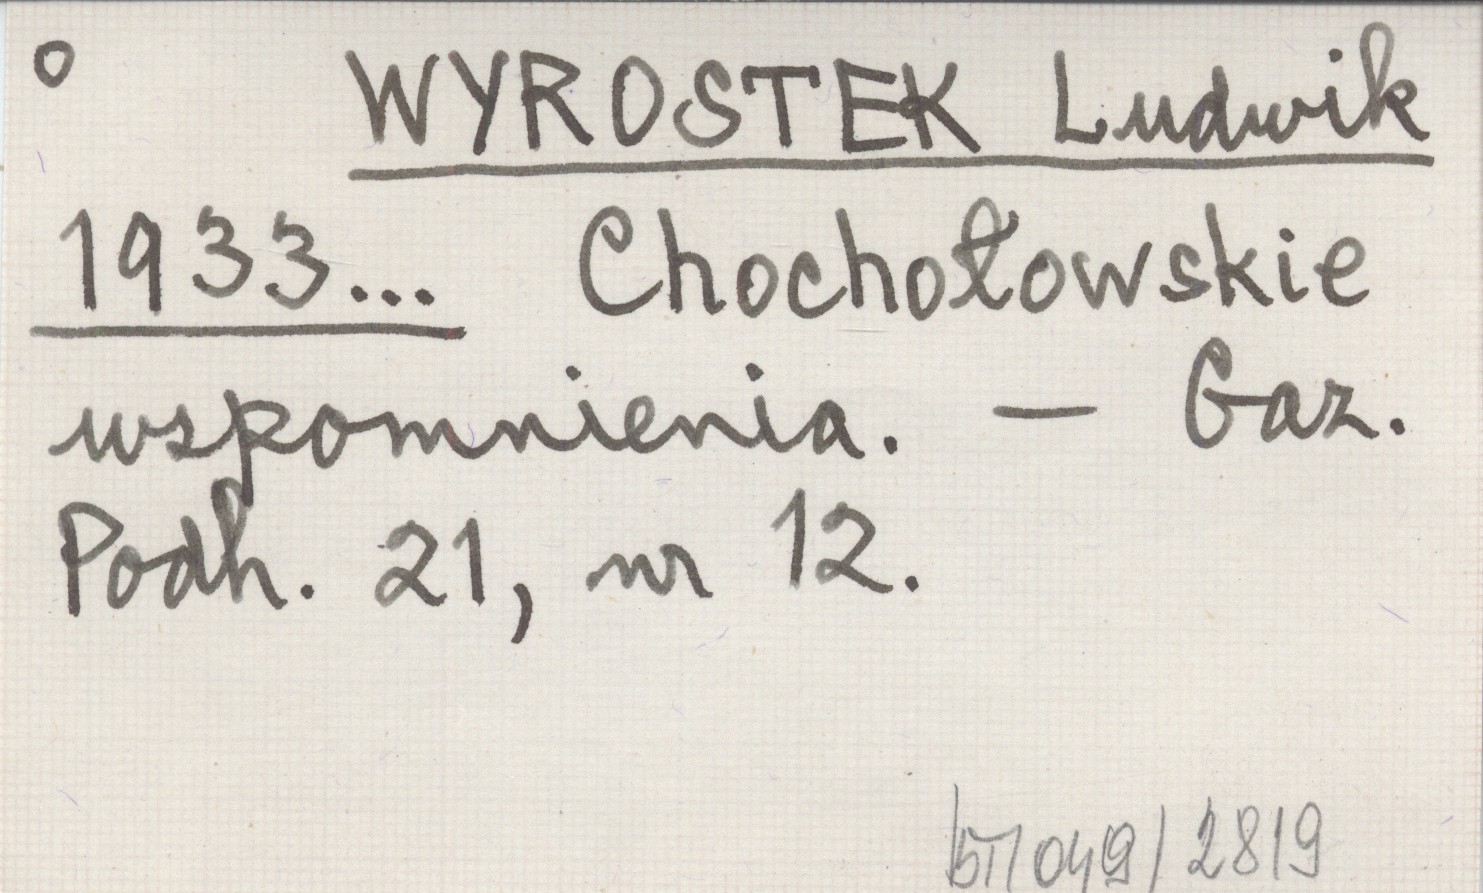 o WYROSTEK Ludwik
1933... Chochołowskie
wspomnienia. — Gaz.
Podh. 21, nr 12.
049/2819